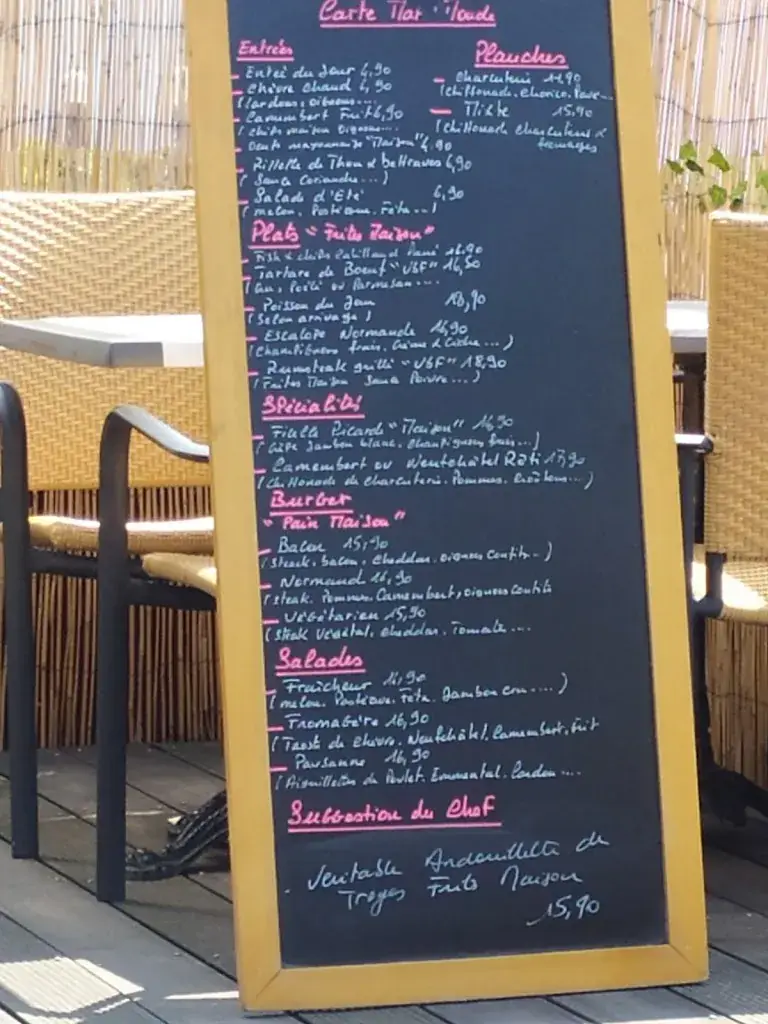 Carte
Entrées
Entrée du Jour 6,90
Chèvre Chaud 6,90
(lardons, oignons....
Camembert Frit 6,90
(chips maison oignons....
Oeufs mayonnaise "Maison" 6.90
Rillette de Thon & betteraves 6,90
(Sauce Coriandre...)
Salade d'Eté 6,90
(melon, Pastèque, Féta...)
Planches
Charcuterie 14.90
(chiffonnade, Chorizo,
Mixte 15,90
(chiffonnade charcuteries &
fromages
Plats "Frites Maison"
Fish & chips Cabillaud Pané 16.90
Tartare de Boeuf "VBF" 16,50
Poêlé ou Parmesan...
Poisson du Jour 18,90
(Selon arrivage)
Escalope Normande 16,90
(champignons frais, Crème & Cidre...)
Rumsteak grillé "VBF" 18,90
(Frites Maison Sauce Poivre...)
Spécialités
Ficelle Picarde "Maison" 16,90
(Crêpe Jambon blanc, Champignons frais...)
Camembert ou Neufchâtel Rôti 17,90
(Chiffonnade de charcuterie, Pommes, Croûtons...)
Burger
"Pain Maison"
Bacon 15,90
(Steack, bacon, cheddar, oignons confits..)
Normand 16,90
(steak, Pommes, Camembert, oignons confits
Végétarien 15,90
(Steak Végétal, cheddar, Tomate....
Salades
Fraîcheur 16,90
(melon, Pastèque, Féta, Jambon cru....)
Fromagère 16,90
(Toast de chèvre, Neufchâtel, Camembert, frit
Paysanne 16,90
(Aiguillettes de Poulet, Emmental, Lardon...
Suggestion du Chef
Véritable Andouillette de
Troyes Frites Maison
15,90